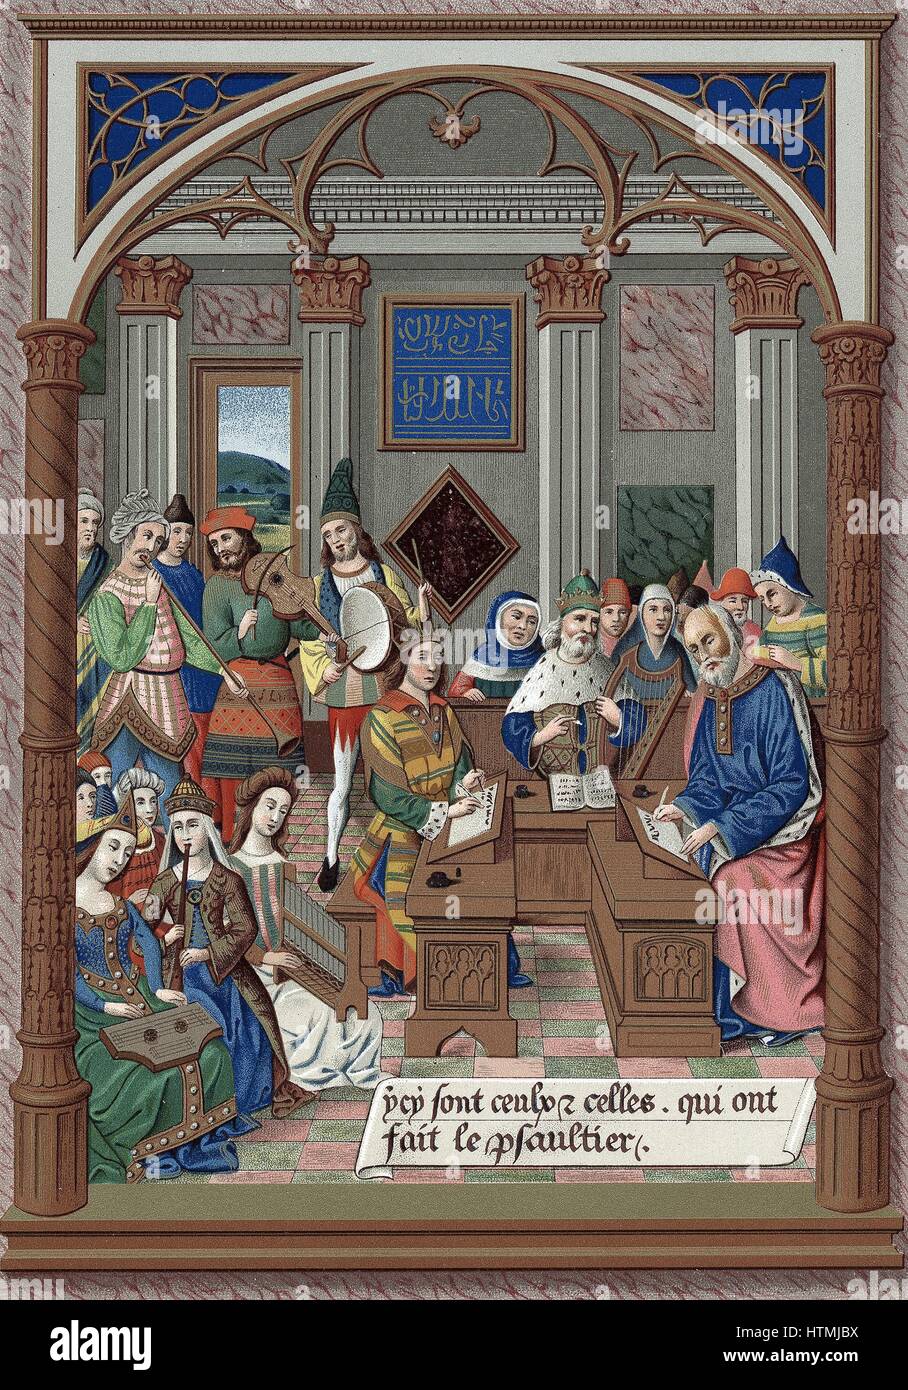 ycy sont ceulx ⁊ celles . qui ont
fait le psaultier .
alamy
Image ID: HTMJBX
www.alamy.com